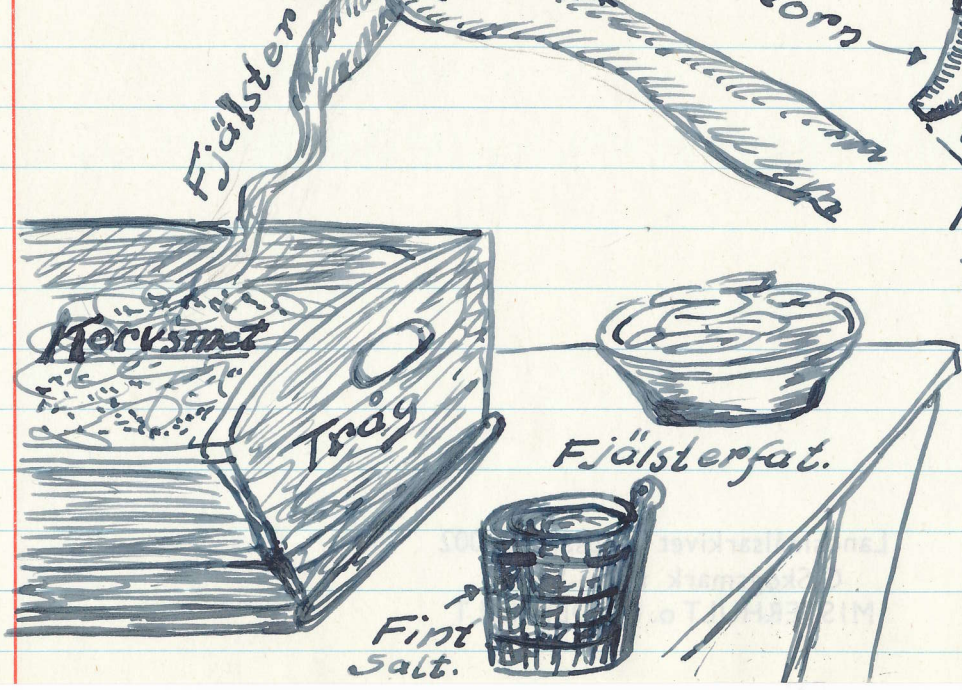 Fjälster
orn
Korvsmet
Tråg
Fjälsterfat.
Fint
Salt.